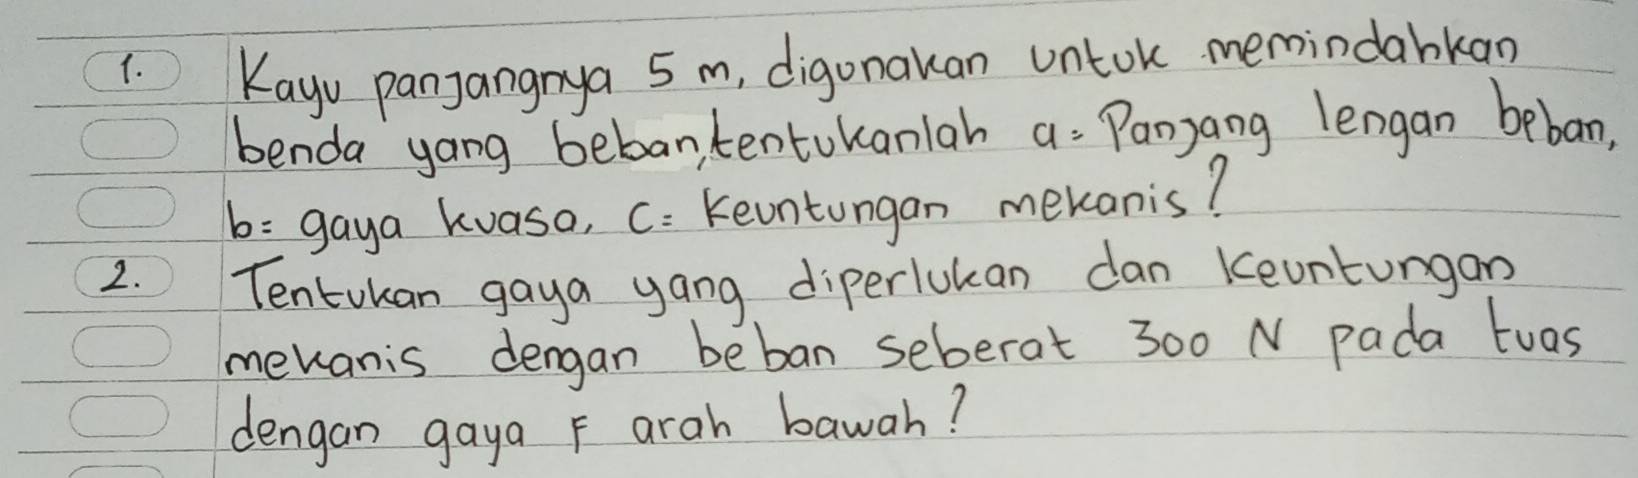 1. Kayu panjangnya 5 m, digunakan untuk memindahkan
benda yang beban, tentukanlah a = Panjang lengan beban,
b = gaya kuasa, c = Keuntungan mekanis?
2. Tentukan gaya yang diperlukan dan Keuntungan
mekanis dengan beban seberat 300 N pada tuas
dengan gaya F arah bawah?